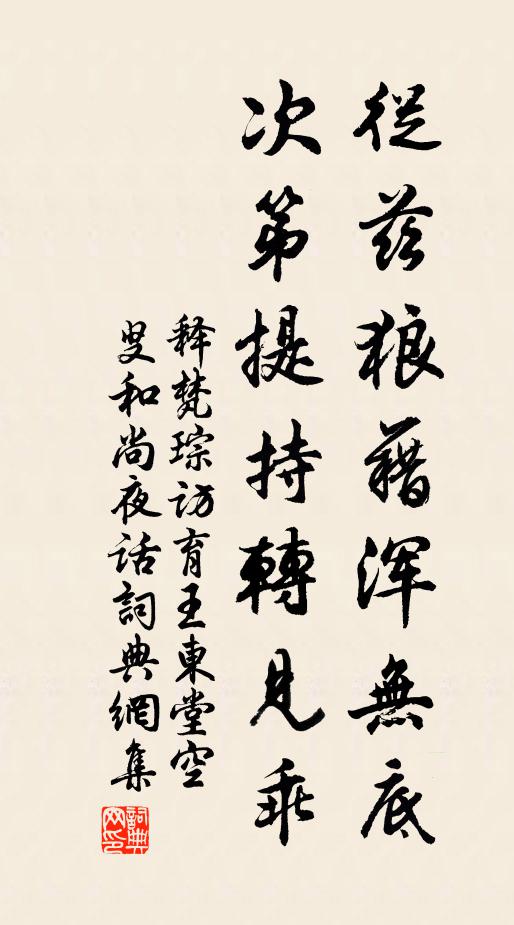 從茲狼藉渾無底
次第提持轉見乖
释梵琮访育王東堂空
叟和尚夜话詞典網集
詞典
网印